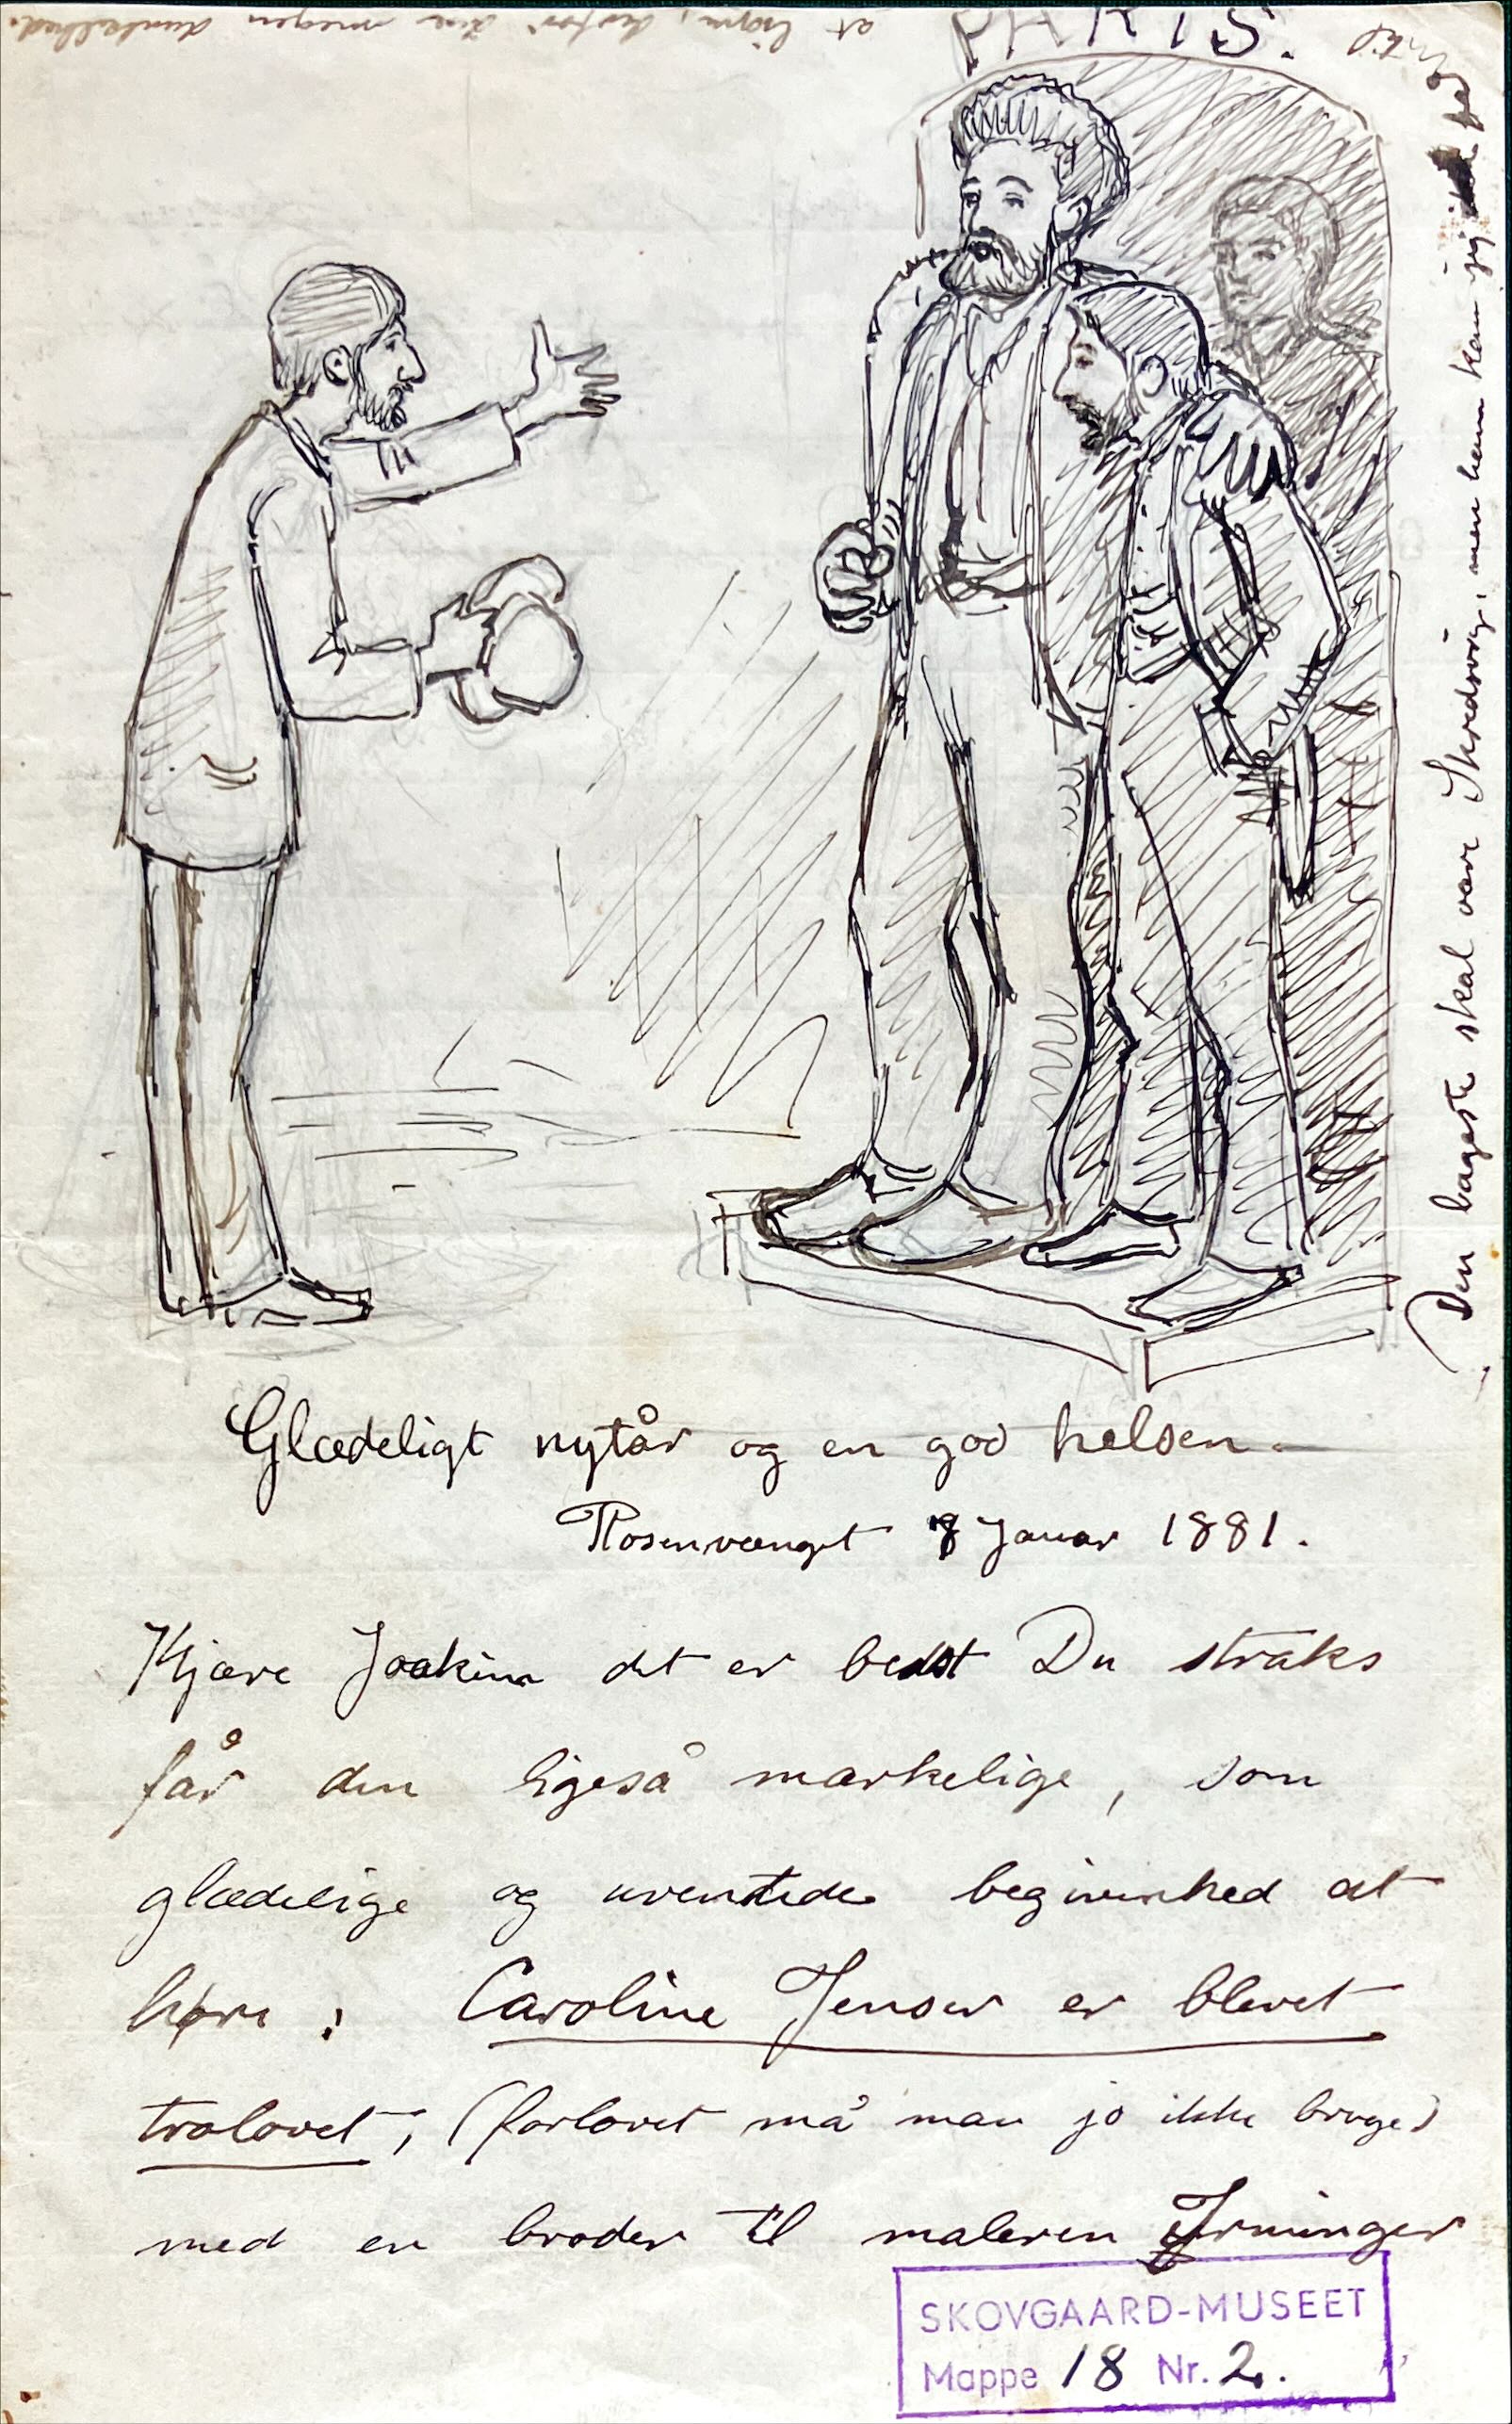 PARIS.
Den bageste skal være Skredsvig, men ham kan jeg ikke få
til
at ligne, derfor den megen dunkelhed.
Glædeligt nytår og en god helsen.
Rosenvænget 8 Januar 1881.
Kjære Joakim det er bedst Du straks
får den ligeså mærkelige, som
glædelige og uventede begivenhed at
høre: Caroline Jensen er blevet
trolovet, (forlovet må man jo ikke bruge)
med en broder til maleren Irminger
SKOVGAARD-MUSEET
Mappe 18 Nr. 2.